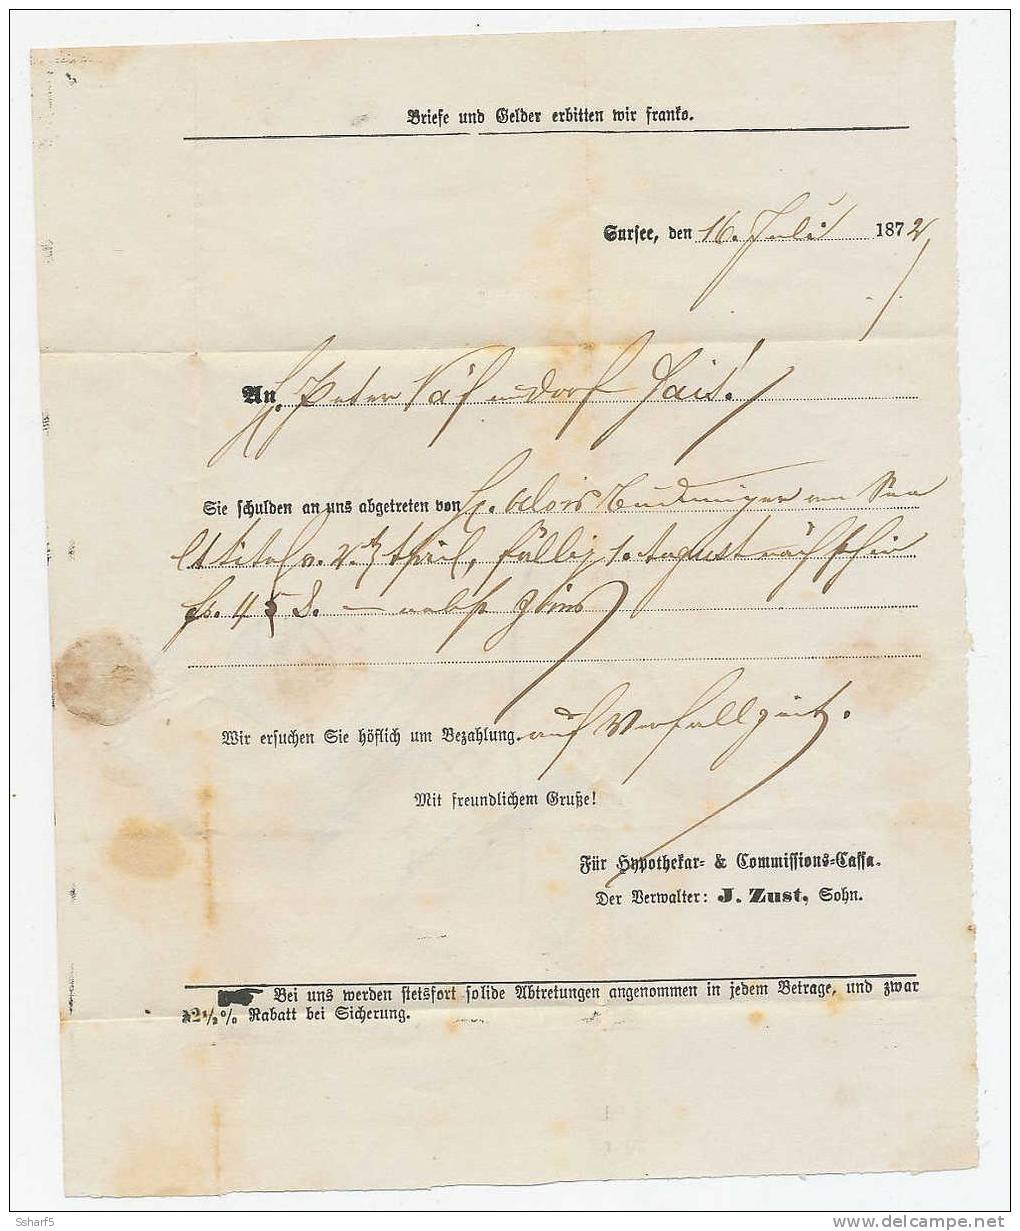 Briefe und Gelder erbitten wir franko.
Sursee, den 16. Juli 1872
An H. Peter Näf
Sie schulden an uns abgetreten von H. Alois am See
fällig 1. August
Fr. 458. — nebst Zins
Wir ersuchen Sie höflich um Bezahlung auf Verfallzeit.
Mit freundlichem Gruße!
Für Hypothekar- & Commissions-Cassa.
Der Verwalter: J. Zust, Sohn.
Bei uns werden stetsfort solide Abtretungen angenommen in jedem Betrage, und zwar
à 2 1/2 % Rabatt bei Sicherung.
Ssharf5
www.delcampe.net